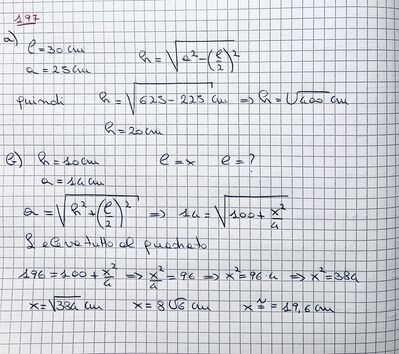 197
a) l = 30 cm
a = 25 cm
h = √(a² - (l/2)²)
quindi h = √(625 - 225) cm ⇒ h = √400 cm
h = 20 cm
b) h = 10 cm l = x l = ?
a = 14 cm
a = √(h² + (l/2)²) ⇒ 14 = √(100 + x²/4)
Si eleva tutto al quadrato
196 = 100 + x²/4 ⇒ x²/4 = 96 ⇒ x² = 96·4 ⇒ x² = 384
x = √384 cm x = 8√6 cm x ≅ 19,6 cm